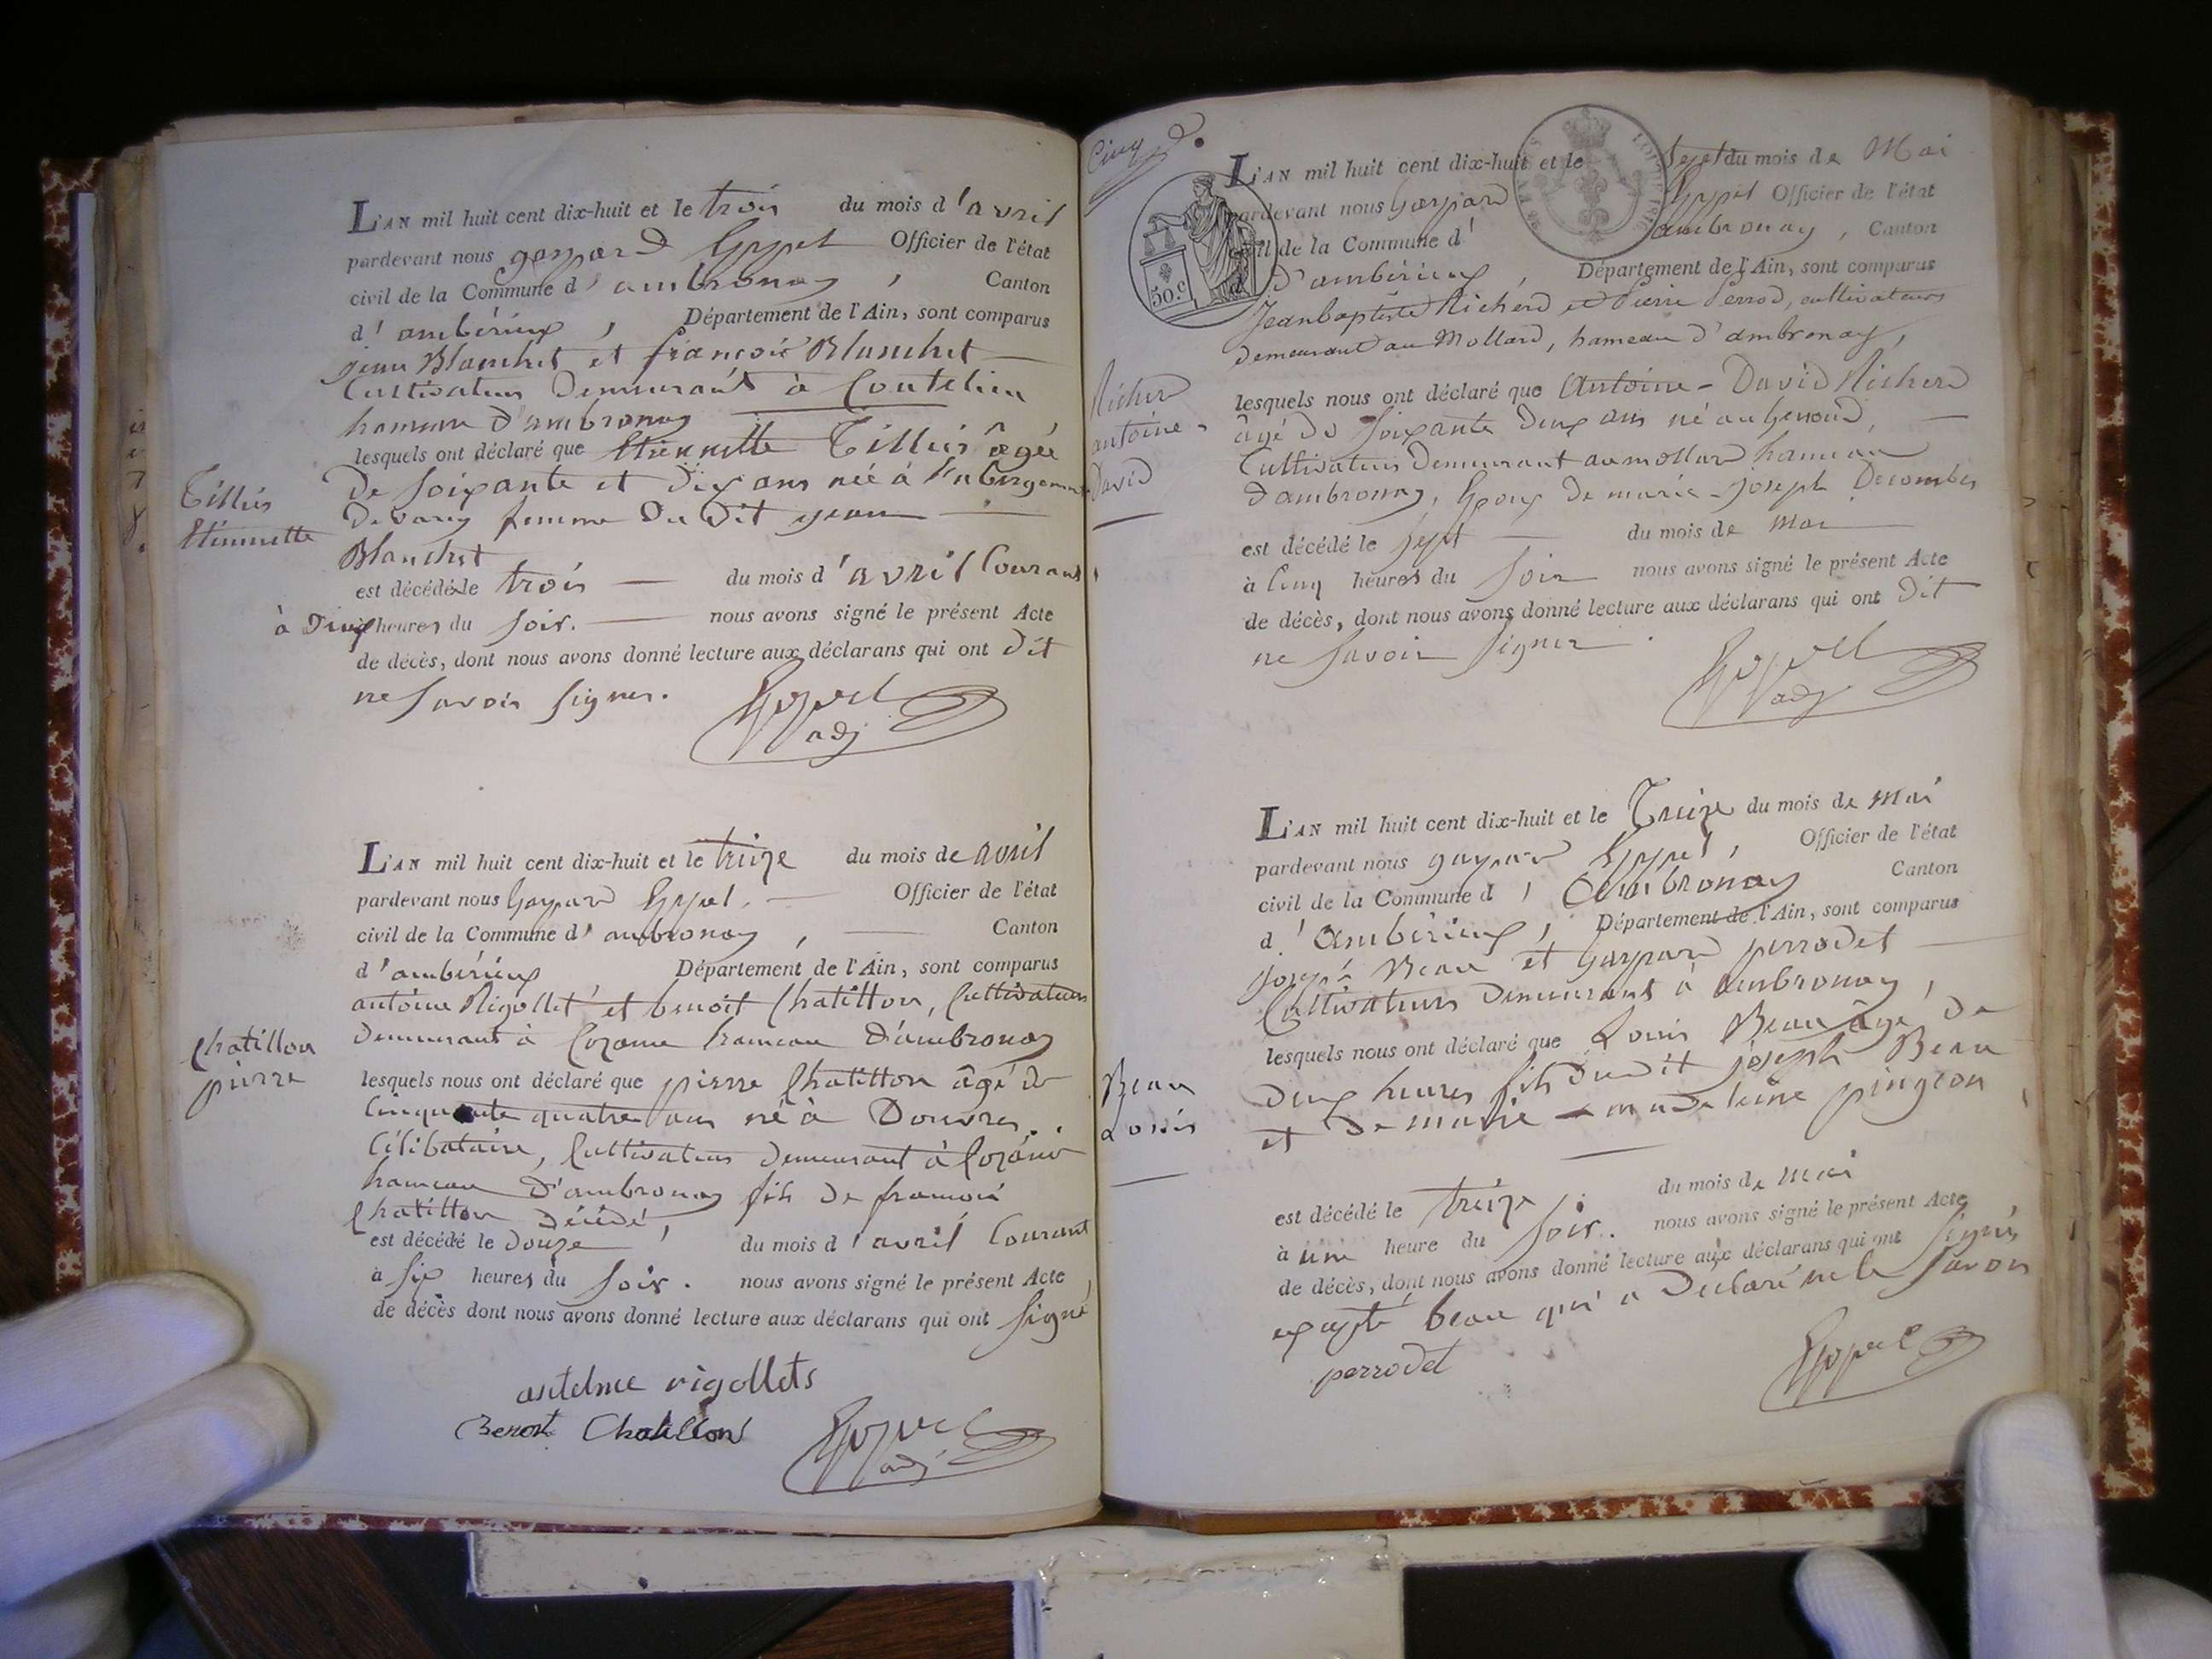 L'AN mil huit cent dix-huit et le trois du mois d'avril
pardevant nous gaspard Officier de l'état
civil de la Commune d'ambronay, Canton
d'ambérieux, Département de l'Ain, sont comparus
jean Blanchet et françois Blanchet
Cultivateurs Demeurant à Coutelieu
hameau D'ambronay
lesquels ont déclaré que Etiennette Tillier âgée
De soixante et Dix ans née à
femme Du Dit jean
Blanchet
est décédée le trois du mois d'avril Courant
à Deux heures du soir. nous avons signé le présent Acte
de décès, dont nous avons donné lecture aux déclarans qui ont Dit
ne savoir signer.
adj
Tillier
Etiennette
L'AN mil huit cent dix-huit et le treize du mois de avril
pardevant nous Gaspard Officier de l'état
civil de la Commune d'ambronay, Canton
d'ambérieux Département de l'Ain, sont comparus
antoine Rigollet et benoit Chatillon, Cultivateurs
Demeurant à hameau D'ambronay
lesquels nous ont déclaré que pierre Chatillon âgé de
Cinquante quatre ans né à Douvres,
Célibataire, Cultivateur Demeurant à
hameau D'ambronay fils De francois
Chatillon Décédé,
est décédé le Douze du mois d'avril Courant
à six heures du soir. nous avons signé le présent Acte
de décès dont nous avons donné lecture aux déclarans qui ont signé
Chatillon
pierre
antelme rigollets
Benoit Chatillon
adj
Cinq
50.c
L'AN mil huit cent dix-huit et le sept du mois de Mai
pardevant nous Gaspard Officier de l'état
civil de la Commune d'ambronay, Canton
D'ambérieux, Département de l'Ain, sont comparus
Jean baptiste Richerd et Pierre Perrod, cultivateurs
Demeurant au Mollard, hameau D'ambronay,
lesquels nous ont déclaré que Antoine-David Richerd
âgé De soixante Deux ans né au Genoud,
Cultivateur Demeurant au mollard hameau
D'ambronay, Epoux De marie-joseph Decombes
est décédé le sept du mois de mai
à Cinq heures du soir nous avons signé le présent Acte
de décès, dont nous avons donné lecture aux déclarans qui ont Dit
ne savoir signer
adj
Richerd
antoine-
David
L'AN mil huit cent dix-huit et le Treize du mois de mai
pardevant nous gaspard Officier de l'état
civil de la Commune d'Ambronay Canton
d'Ambérieux, Département de l'Ain, sont comparus
joseph Beau et Gaspard perrodet
Cultivateurs Demeurant à Ambronay,
lesquels nous ont déclaré que Louis Beau âgé De
Deux heures fils Dudit joseph Beau
et De marie-madeleine pingeon
est décédé le treize du mois de mai
à une heure du soir. nous avons signé le présent Acte
de décès, dont nous avons donné lecture aux déclarans qui ont signés
excepté beau qui a Déclaré ne le savoir
perrodet
Beau
Louis